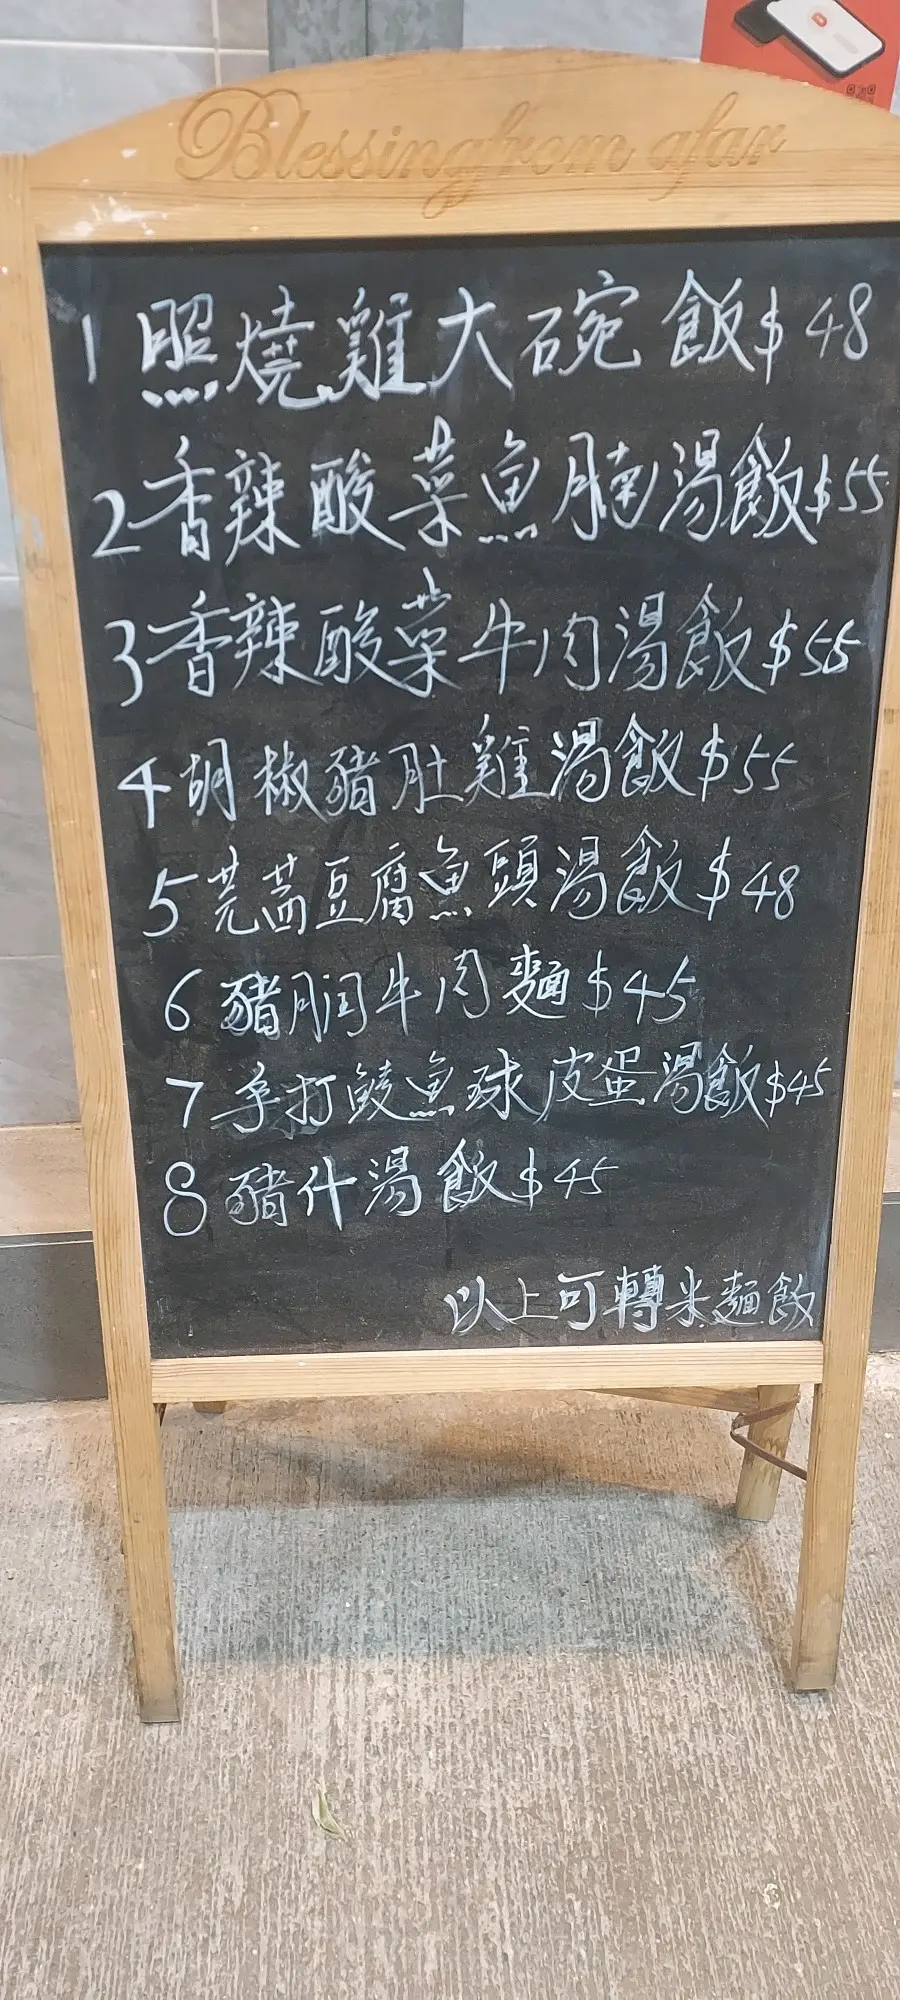 Blessing from afar
1 照燒雞大碗飯 $48
2 香辣酸菜魚腩湯飯 $55
3 香辣酸菜牛肉湯飯 $55
4 胡椒豬肚雞湯飯 $55
5 芫茜豆腐魚頭湯飯 $48
6 豬膶牛肉麵 $45
7 手打鯪魚球皮蛋湯飯 $45
8 豬什湯飯 $45
以上可轉米麵飯